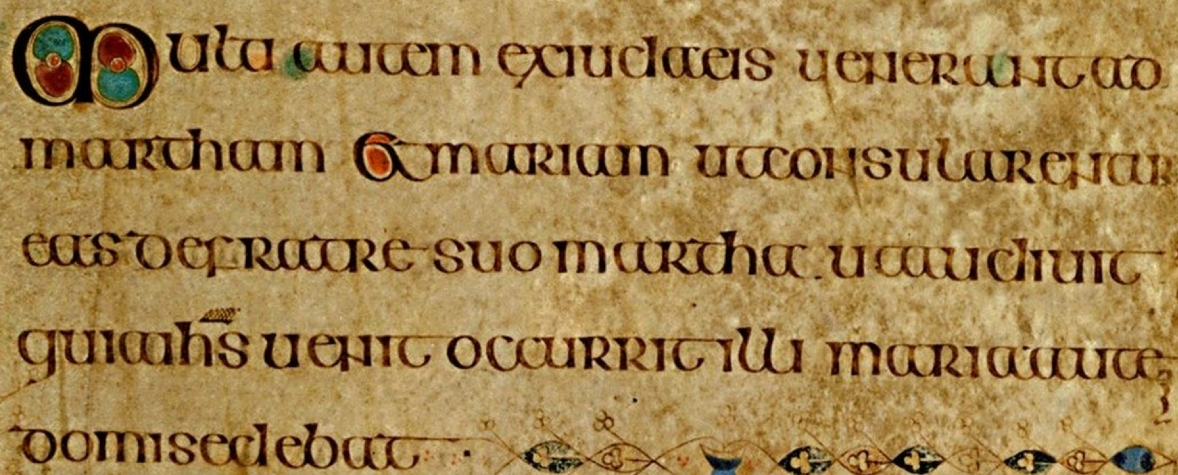 Multi autem exiudaeis uenerant ad
martham & mariam ut consularentur
eas de fratre suo martha ut audiuit
quia ihs uenit occurrit illi maria autem
domi sedebat